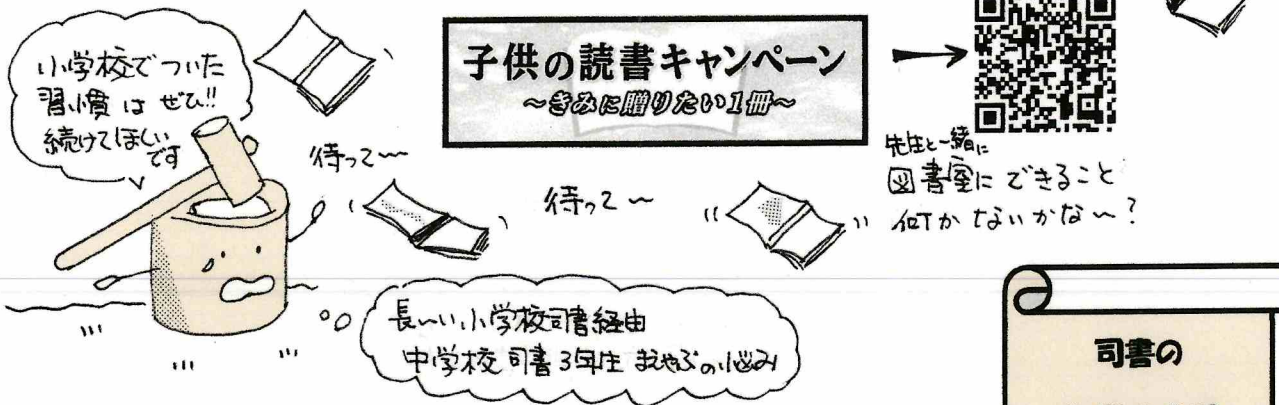 小学校でついた
習慣はぜひ!!
続けてほしい
です
子供の読書キャンペーン
〜きみに贈りたい1冊〜
先生と一緒に
図書室にできること
何かないかな〜?
待って〜
待って〜
長〜い小学校司書経由
中学校司書3年生 まやぶの悩み
司書の